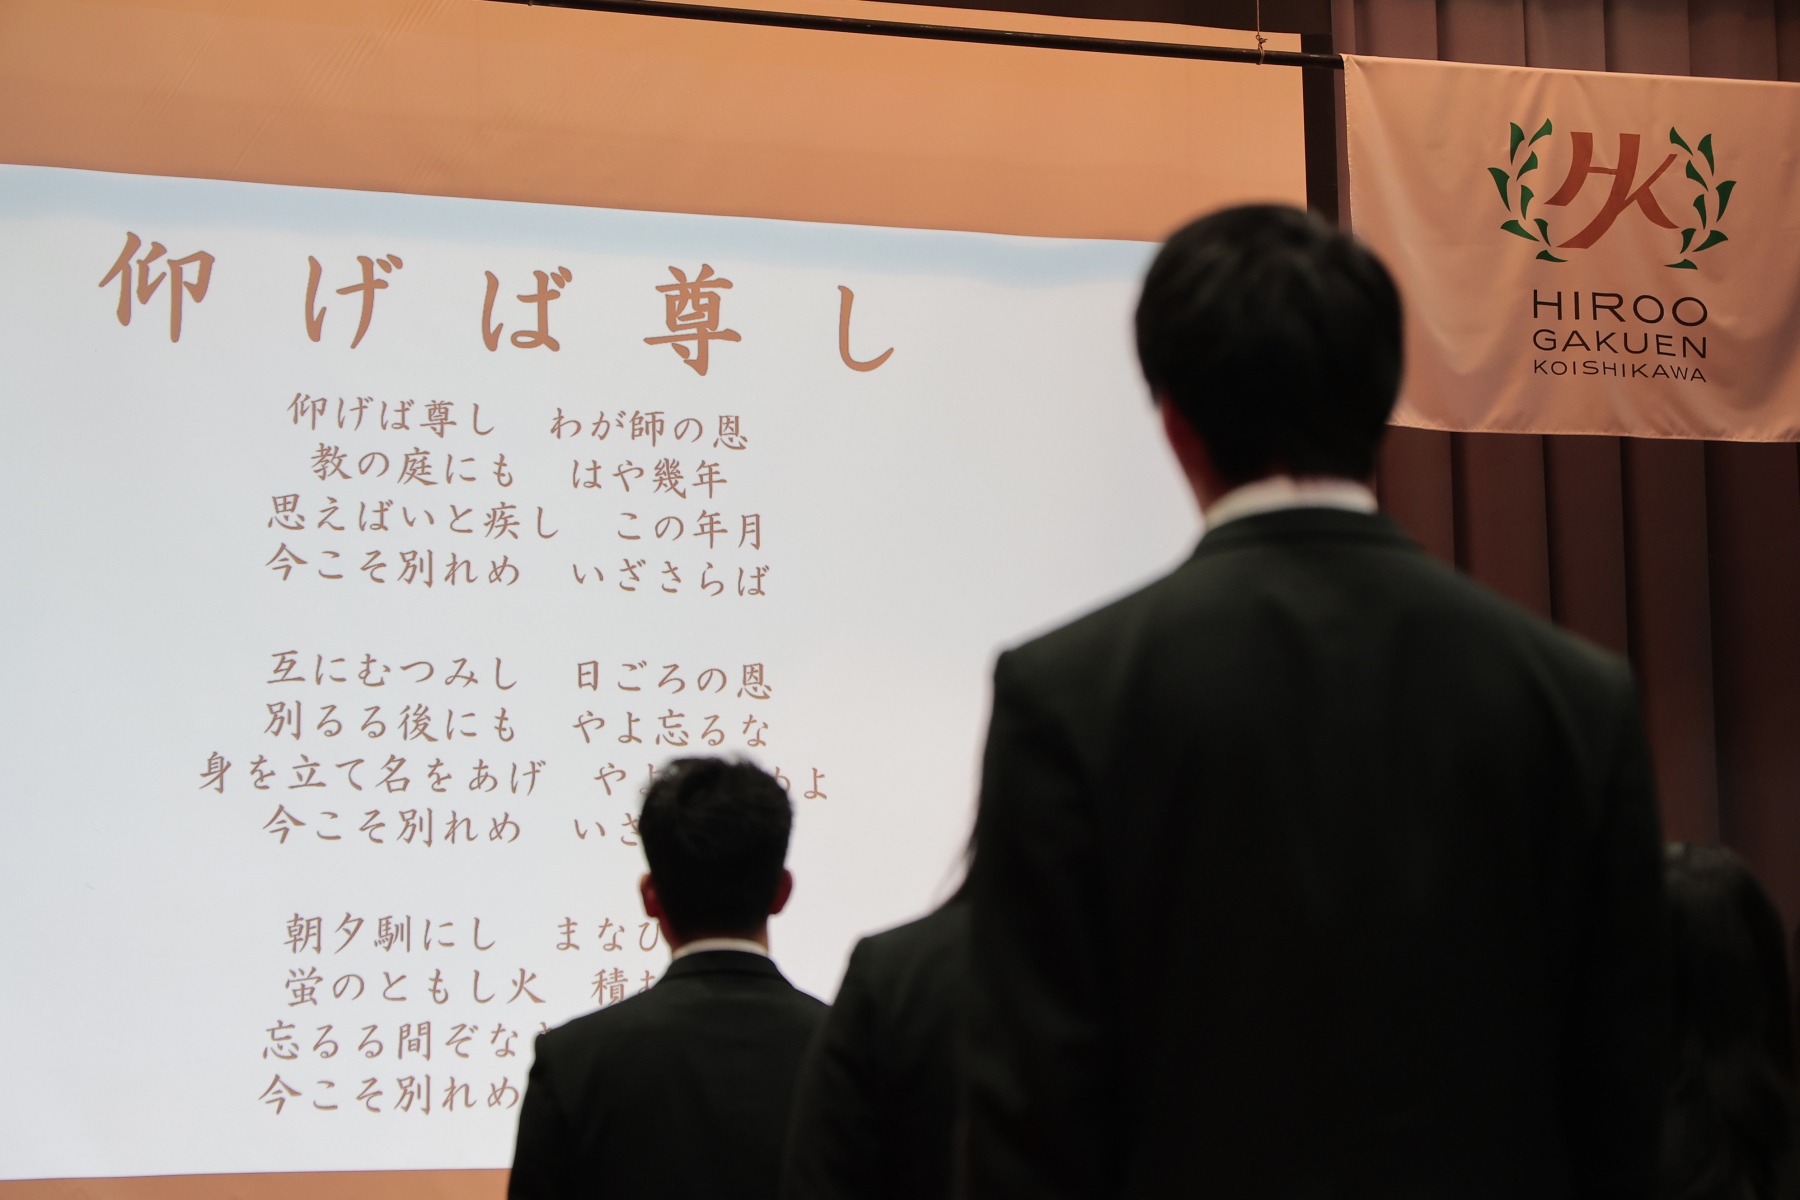 仰げば尊し
仰げば尊し　わが師の恩
教の庭にも　はや幾年
思えばいと疾し　この年月
今こそ別れめ　いざさらば
互にむつみし　日ごろの恩
別るる後にも　やよ忘るな
身を立て名をあげ　や　よ
今こそ別れめ　いざ
朝夕馴にし　まなび
蛍のともし火　積
忘るる間ぞな
今こそ別れめ
HK
HIROO
GAKUEN
KOISHIKAWA